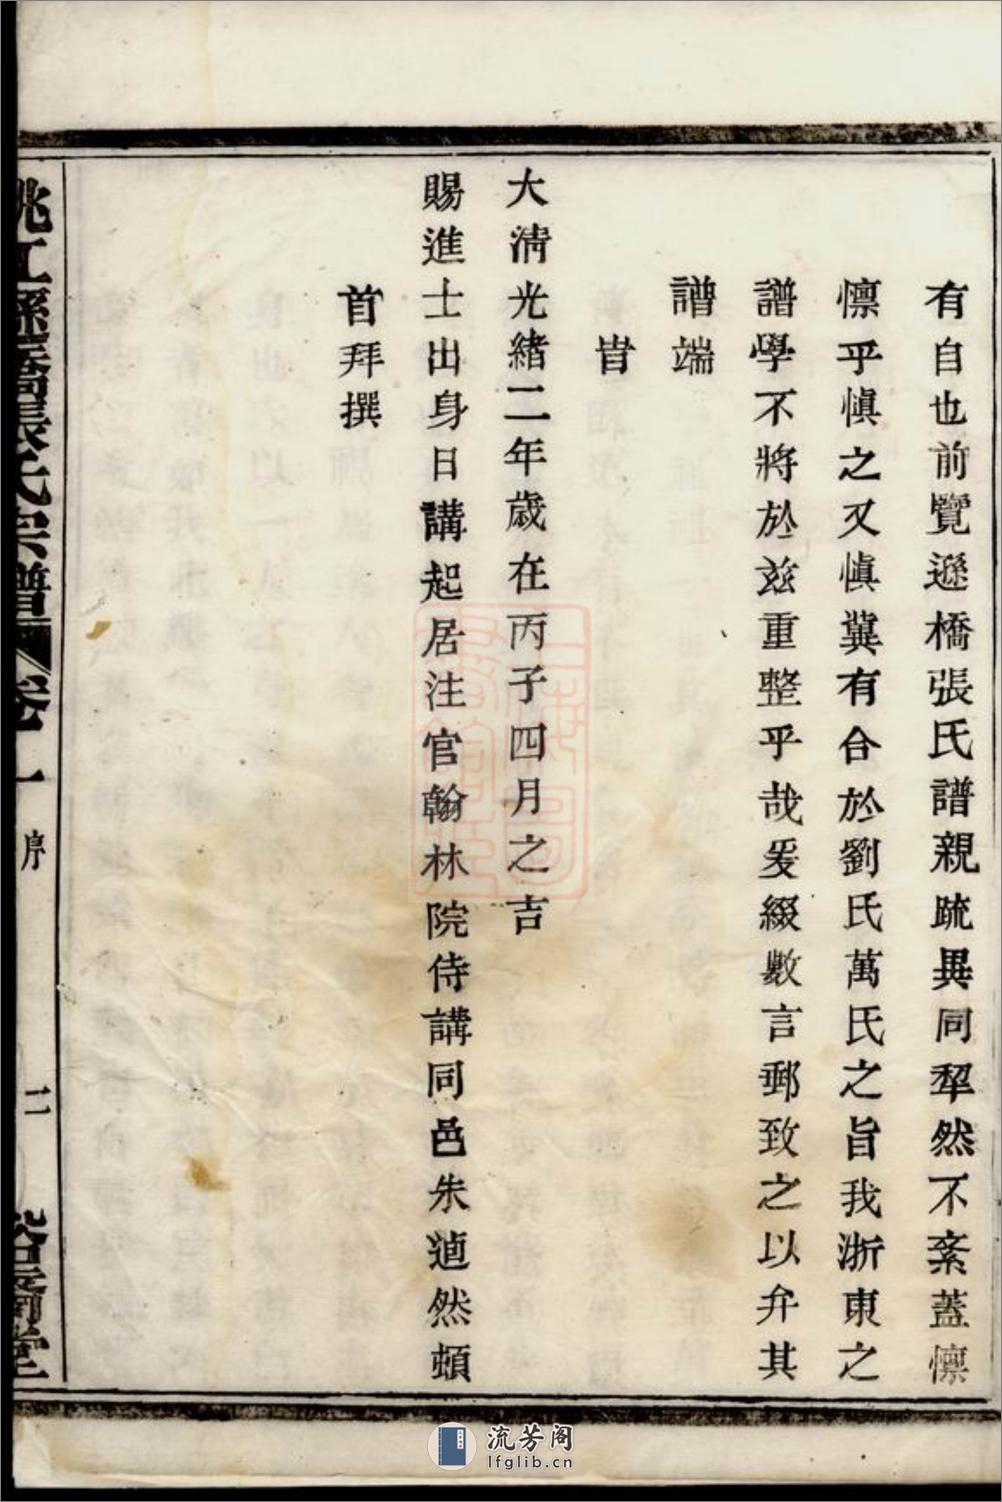 有自也前覽遜橋張氏譜親疏異同犂然不紊蓋懍
懍乎愼之又愼冀有合於劉氏萬氏之旨我浙東之
譜學不將於兹重整乎哉爰綴數言郵致之以弁其
譜端
旹
大淸光緒二年歲在丙子四月之吉
賜進士出身日講起居注官翰林院侍講同邑朱逌然頓
首拜撰
姚江孫橋張氏宗譜 卷一 序 二
流芳阁
lfglib.cn